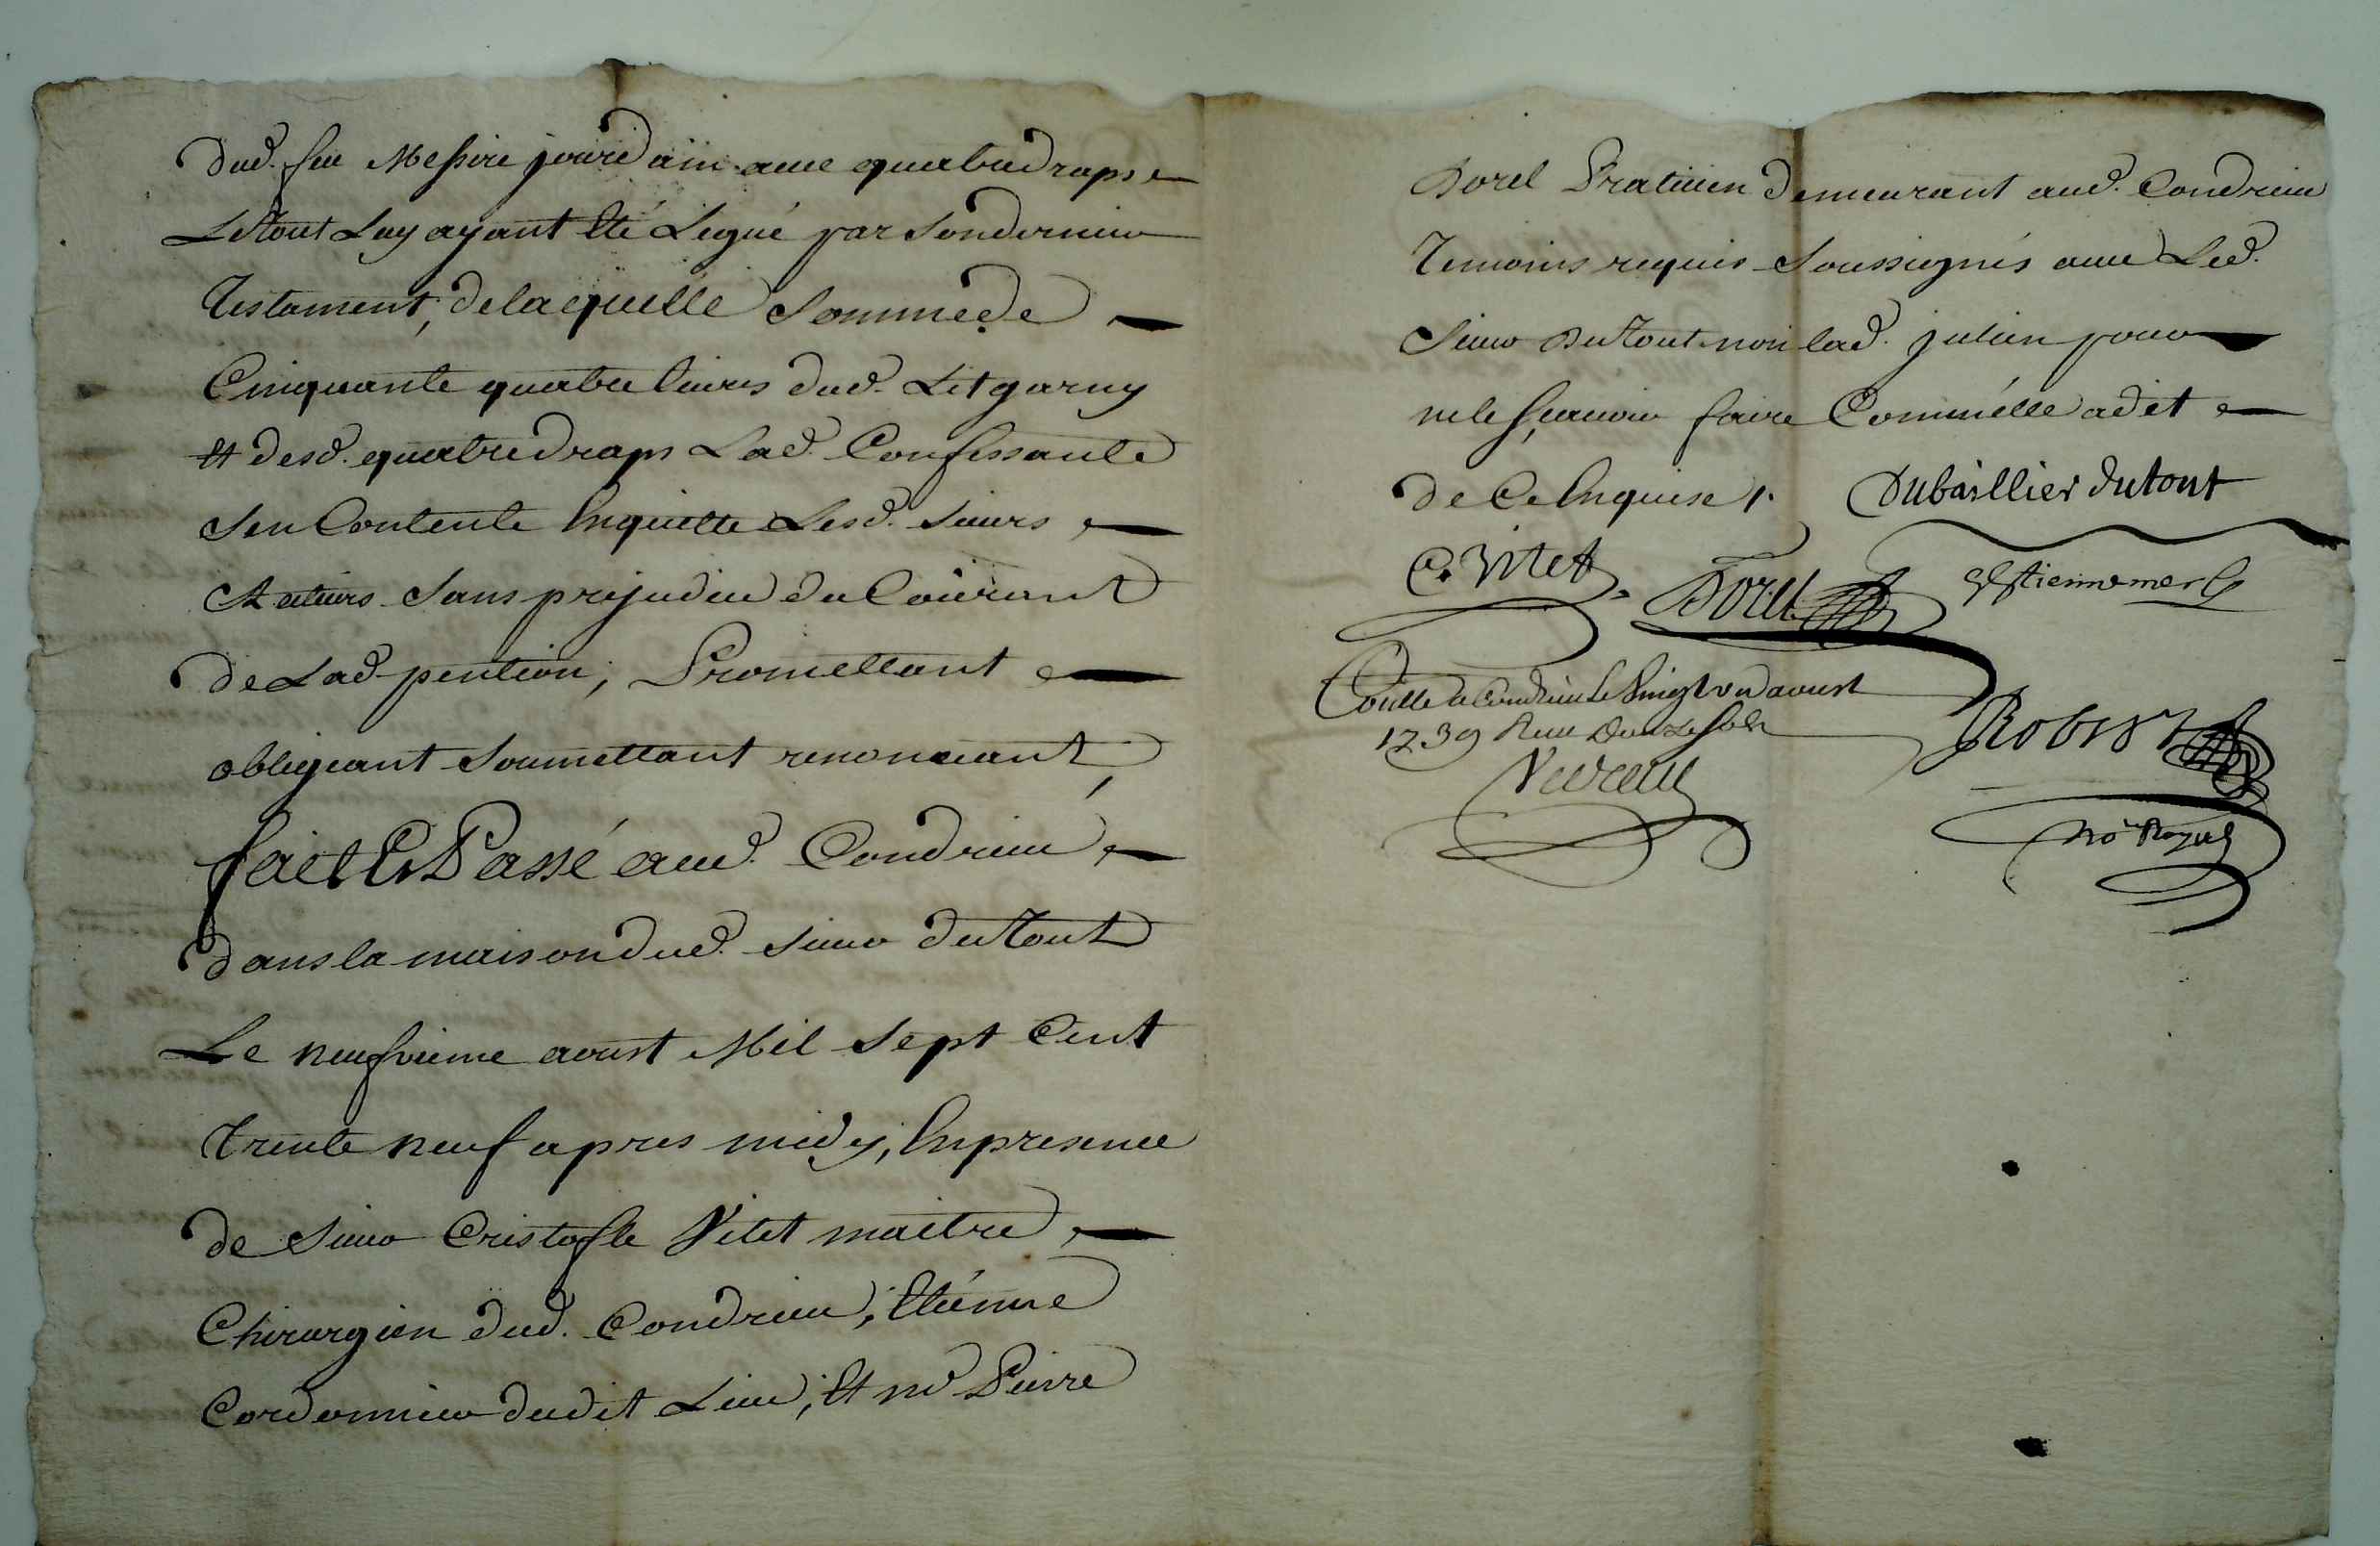 Dud. feu Messire jourdain avec quatre draps
Le tout Luy ayant été Legué par son dernier
Testament, de laquelle Somme de
Cinquante quatre livres dud. Lit garny
Et desd. quatre draps Lad. Confessante
Sen Contente Enquitte Lesd. Sieurs
Sans prejudice du Courant
de Lad. pention, Promettant
obligeant Soumettant renonceant,
fait Et Passé aud. Condrieu
dans la maison dud. Sieur du Tout
Le neufvieme aoust Mil Sept Cent
Trente neuf apres midy, En presence
de Sieur Cristofle Vitet maitre
Chirurgien dud. Condrieu, Etienne
Cordonnier dudit Lieu, Et me Pierre
Borel Praticien demeurant aud. Condrieu
Temoins requis Soussignés avec Led.
Sieur Du Tout non lad. julien pour
ne le sçavoir faire Comm'elle a dit
de Ce Enquise /.
Dubaillier dutout
C. Vitet
Borel
Estienne merle
Conllé a Condrieu Le Vingt un aoust
1739 Reçu Douze sols
Robert
No. Royal